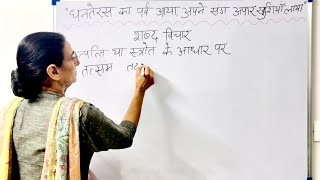 "धनतेरस का पर्व आया, अपने संग अपार खुशियाँ लाया"
शब्द विचार
त्पत्ति या स्त्रोत के आधार पर
तत्सम